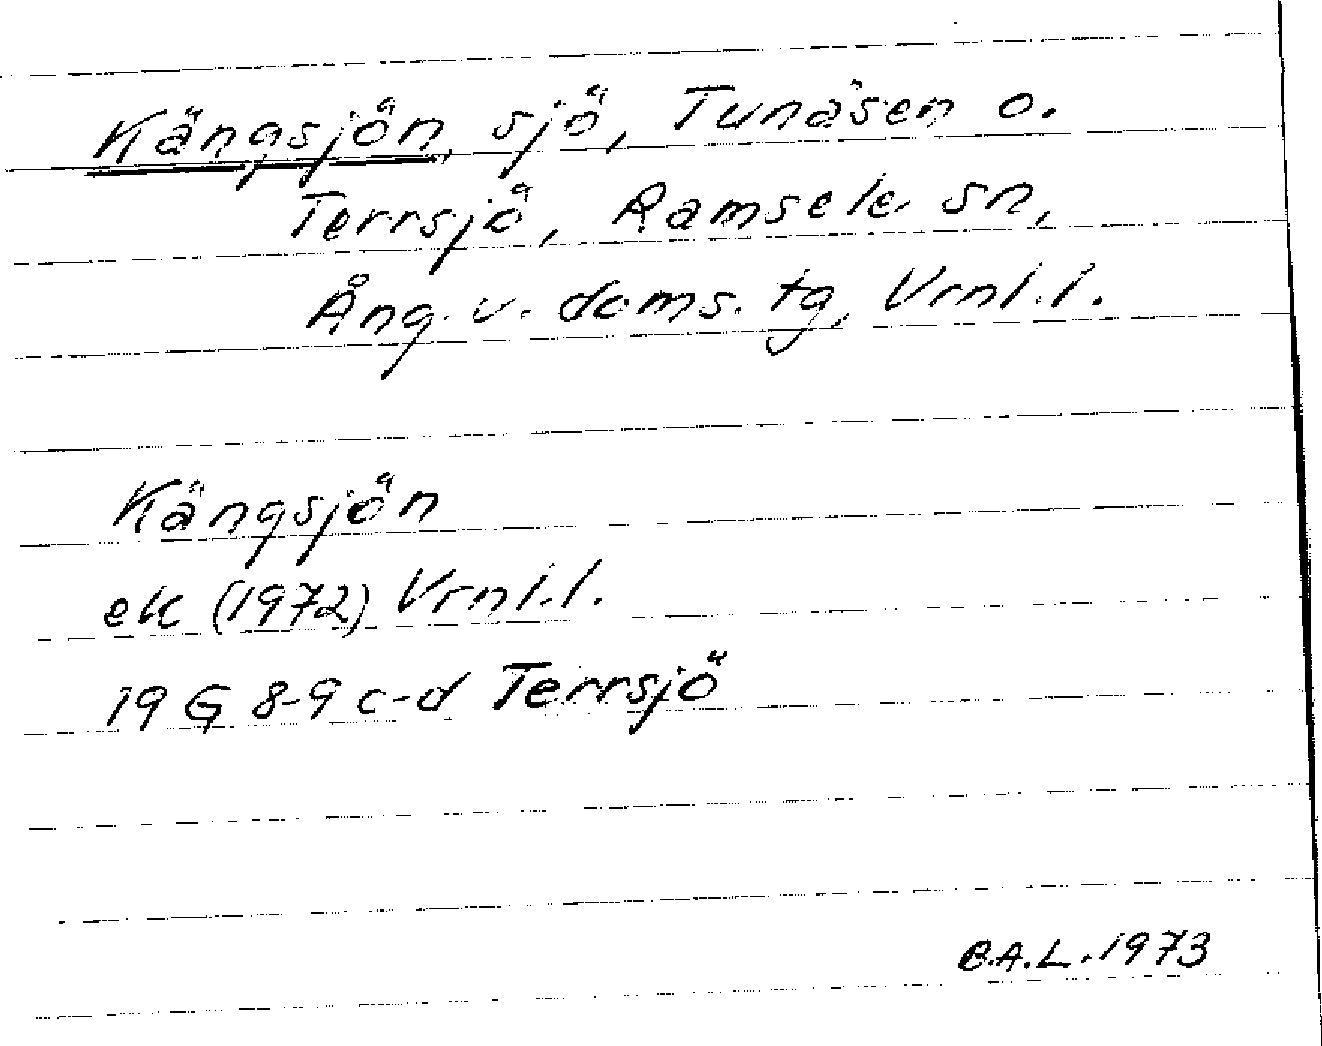 Kängsjön, sjö, Tunåsen o.
Terrsjö, Ramsele sn,
Ång. v. doms. tg, Vrnl.l.
Kängsjön
ek (1972) Vrnl.l.
19 G 8-9 c-d Terrsjö
B.A.L. 1973